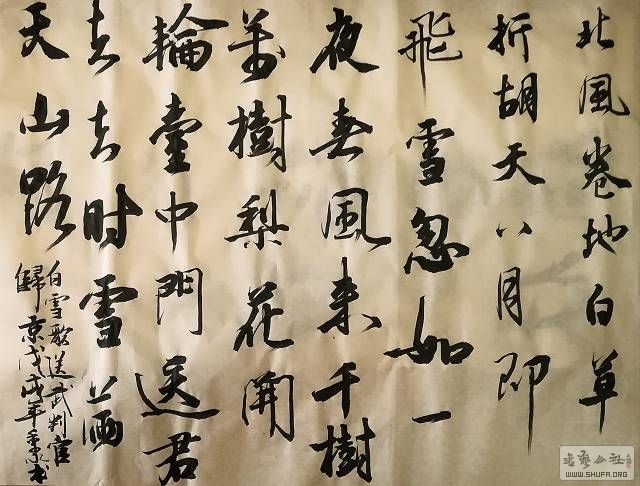 北風卷地白草
折胡天八月即
飛雪忽如一
夜春風来千樹
萬樹梨花開
輪臺中門送君
去去时雪满
天山路
白雪歌送武判官
歸京戊戌年
书藝公社
WWW.SHUFA.ORG